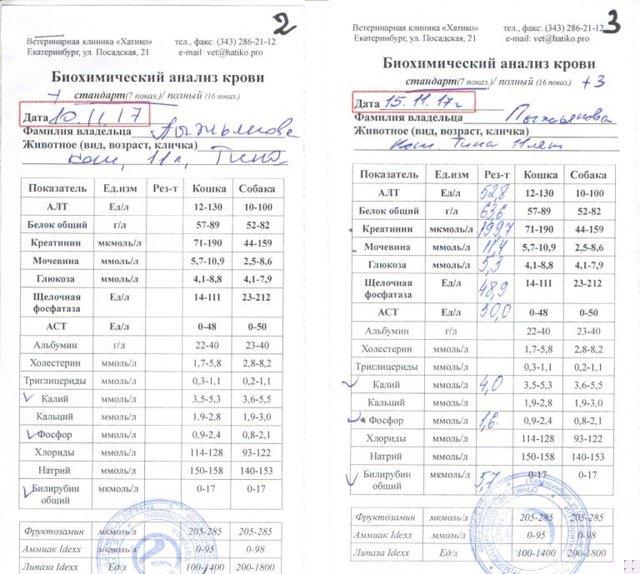 2
Ветеринарная клиника «Хатико» тел., факс: (343) 286-21-12
Екатеринбург, ул. Посадская, 21 e-mail: vet@hatiko.pro
Биохимический анализ крови
стандарт(7 показ.)/ полный (16 показ.)
Дата 10.11.17
Фамилия владельца
Животное (вид, возраст, кличка)
кот, 11 л,
Показатель Ед.изм Рез-т Кошка Собака
АЛТ Ед/л 12-130 10-100
Белок общий г/л 57-89 52-82
Креатинин мкмоль/л 71-190 44-159
Мочевина ммоль/л 5,7-10,9 2,5-8,6
Глюкоза ммоль/л 4,1-8,8 4,1-7,9
Щелочная фосфатаза Ед/л 14-111 23-212
АСТ Ед/л 0-48 0-50
Альбумин г/л 22-40 23-40
Холестерин ммоль/л 1,7-5,8 2,8-8,2
Триглицериды ммоль/л 0,3-1,1 0,2-1,1
Калий ммоль/л 3,5-5,3 3,6-5,5
Кальций ммоль/л 1,9-2,8 1,9-3,0
Фосфор ммоль/л 0,9-2,4 0,8-2,1
Хлориды ммоль/л 114-128 93-122
Натрий ммоль/л 150-158 140-153
Билирубин общий мкмоль/л 0-17 0-17
Фруктозамин мкмоль/л 205-285 205-285
Аммиак Idexx мкмоль/л 0-95 0-98
Липаза Idexx Ед/л 100-1400 200-1800
3
Ветеринарная клиника «Хатико» тел., факс: (343) 286-21-12
Екатеринбург, ул. Посадская, 21 e-mail: vet@hatiko.pro
Биохимический анализ крови
стандарт(7 показ.)/ полный (16 показ.) +3
Дата 15.11.17г
Фамилия владельца
Животное (вид, возраст, кличка)
кот Тина 11 лет
Показатель Ед.изм Рез-т Кошка Собака
АЛТ Ед/л 52,8 12-130 10-100
Белок общий г/л 63,6 57-89 52-82
Креатинин мкмоль/л 199,7 71-190 44-159
Мочевина ммоль/л 11,4 5,7-10,9 2,5-8,6
Глюкоза ммоль/л 5,3 4,1-8,8 4,1-7,9
Щелочная фосфатаза Ед/л 48,9 14-111 23-212
АСТ Ед/л 30,0 0-48 0-50
Альбумин г/л 22-40 23-40
Холестерин ммоль/л 1,7-5,8 2,8-8,2
Триглицериды ммоль/л 0,3-1,1 0,2-1,1
Калий ммоль/л 4,0 3,5-5,3 3,6-5,5
Кальций ммоль/л 1,9-2,8 1,9-3,0
Фосфор ммоль/л 1,6 0,9-2,4 0,8-2,1
Хлориды ммоль/л 114-128 93-122
Натрий ммоль/л 150-158 140-153
Билирубин общий мкмоль/л 5,7 0-17 0-17
Фруктозамин мкмоль/л 205-285 205-285
Аммиак Idexx мкмоль/л 0-95 0-98
Липаза Idexx Ед/л 100-1400 200-1800